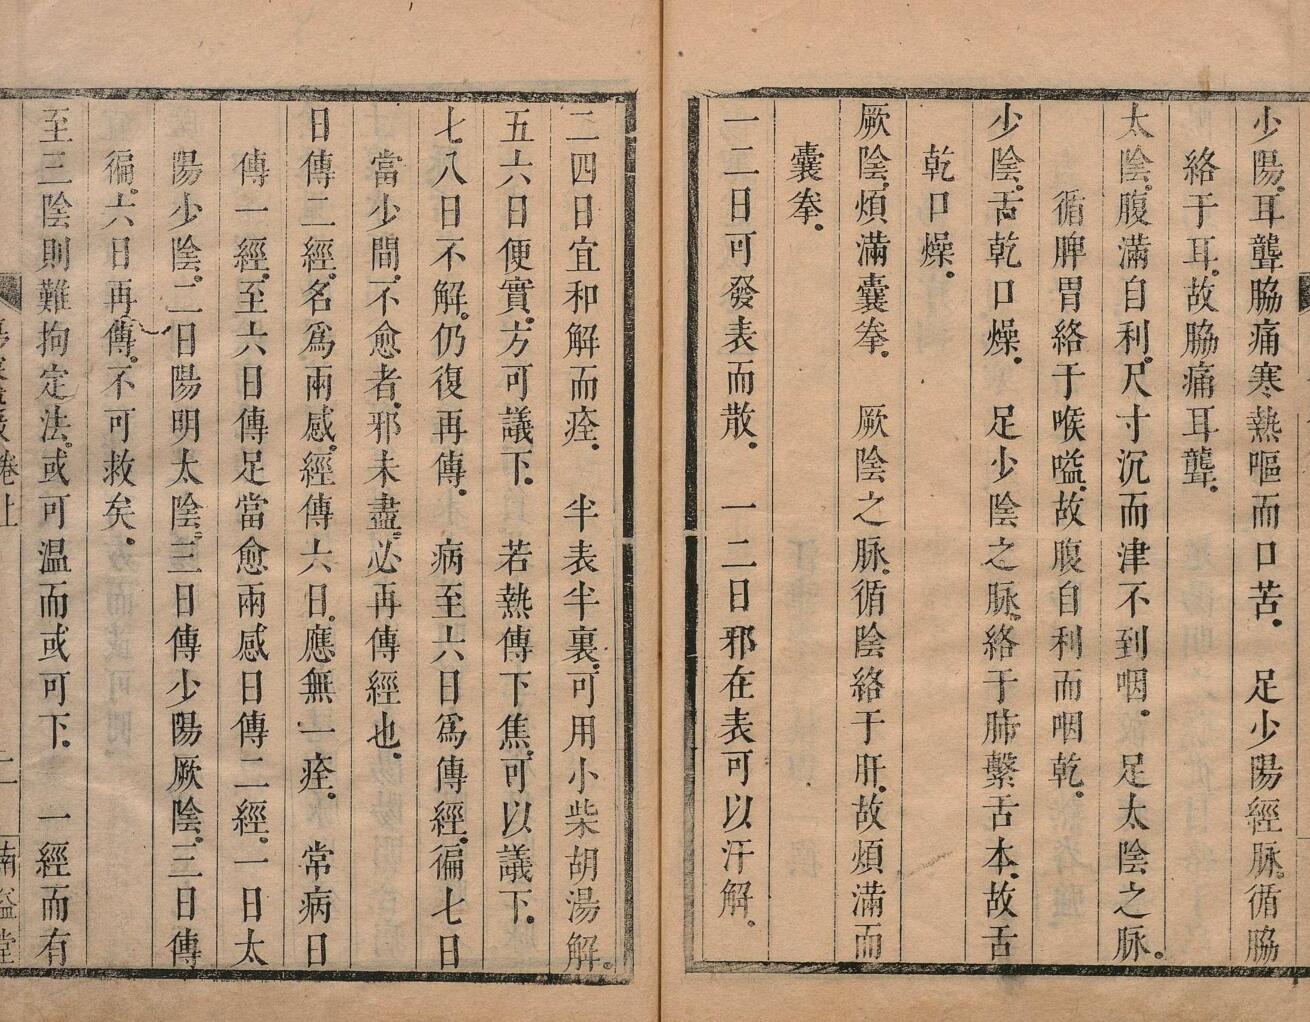 少陽。耳聾脇痛寒熱嘔而口苦。　足少陽經脉。循脇
絡于耳。故脇痛耳聾。
太陰。腹滿自利。尺寸沉而津不到咽。　足太陰之脉。
循脾胃絡于喉嗌。故腹自利而咽乾。
少陰。舌乾口燥。　足少陰之脉。絡于肺繫舌本。故舌
乾口燥。
厥陰。煩滿囊拳。　厥陰之脉。循陰絡于肝。故煩滿而
囊拳。
一二日可發表而散。　一二日邪在表可以汗解。
二四日宜和解而痊。　半表半裏。可用小柴胡湯解。
五六日便實。方可議下。　若熱傳下焦。可以議下。
七八日不解。仍復再傳。　病至六日爲傳經。徧七日
當少間。不愈者。邪未盡。必再傳經也。
日傳二經。名爲兩感。經傳六日。應無一痊。　常病日
傳一經。至六日傳足當愈兩感日傳二經。一日太
陽少陰。二日陽明太陰。三日傳少陽厥陰。三日傳
徧。六日再傳。不可救矣。
至三陰則難拘定法。或可温而或可下。　一經而有
卷上
二